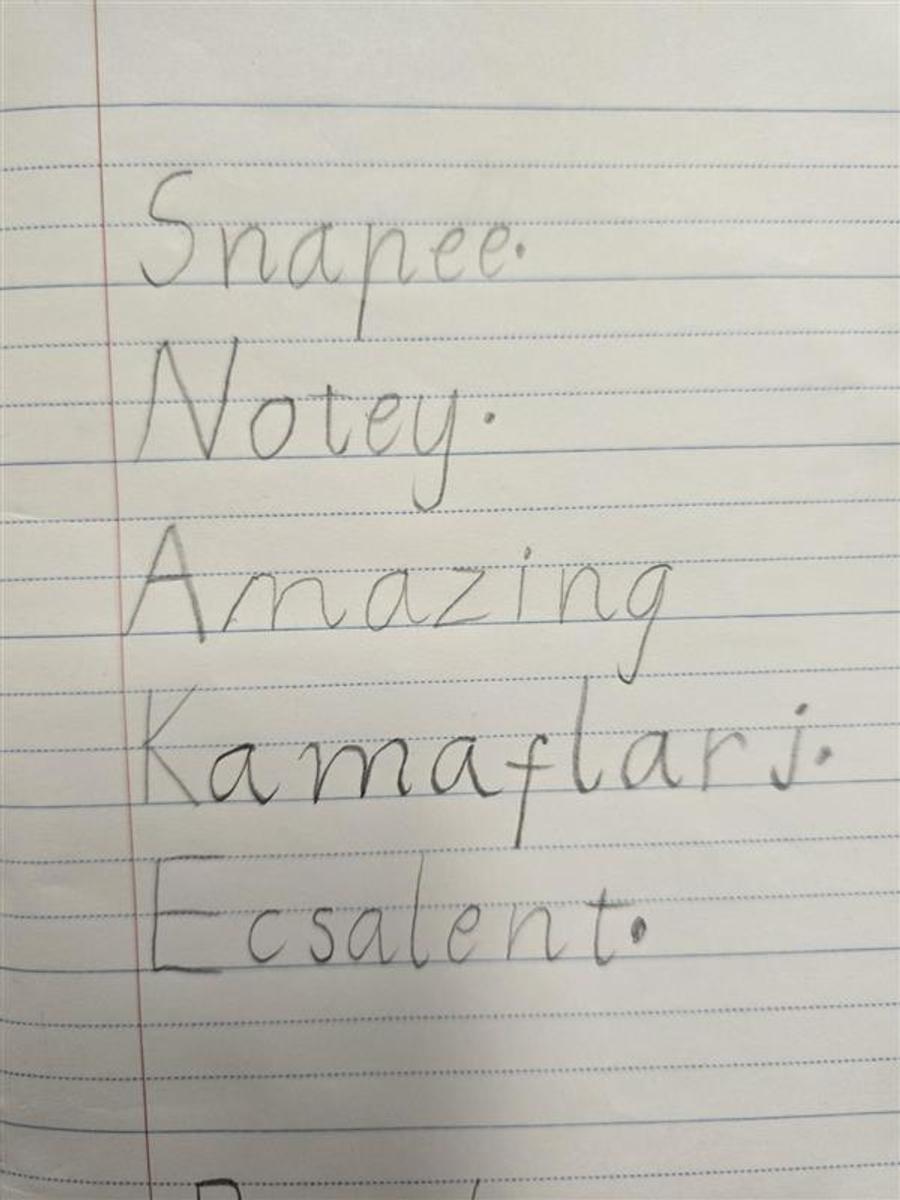 Snapee.
Notey.
Amazing
Kamaflarj.
Ecsalent.